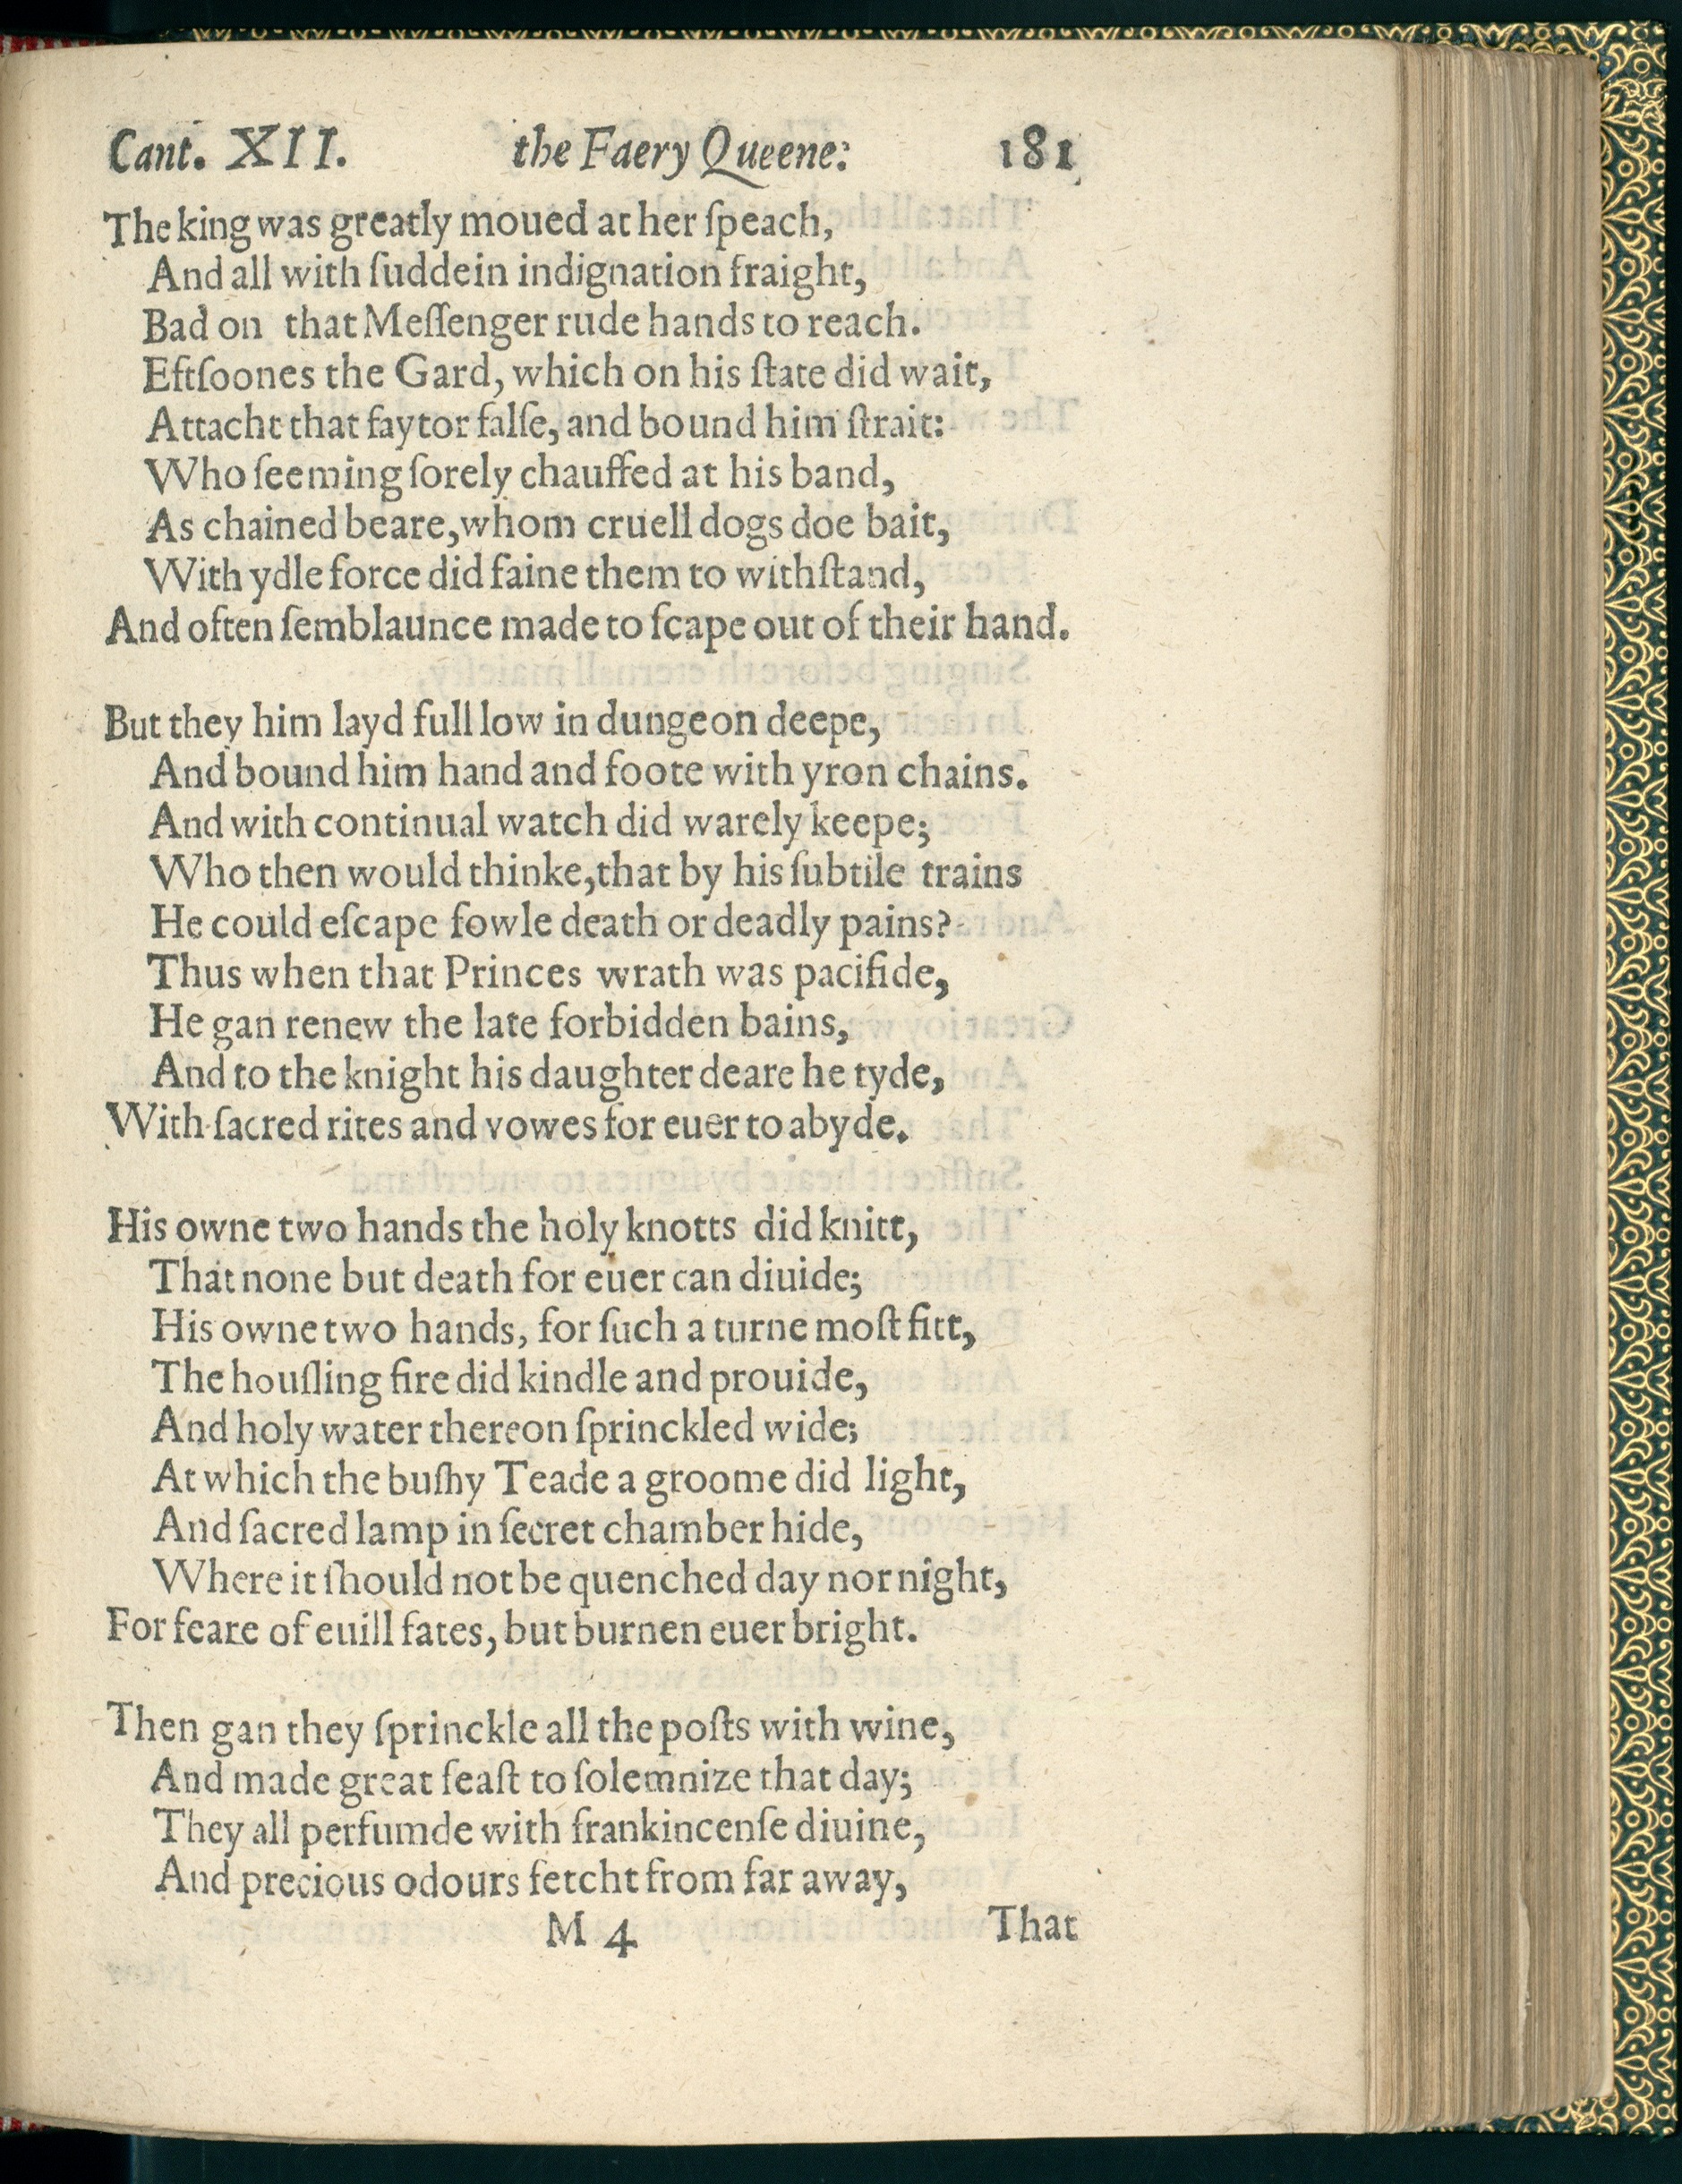 Cant. XII. the Faery Queene: 181
The king was greatly moued at her ſpeach,
And all with ſuddein indignation fraight,
Bad on that Meſſenger rude hands to reach.
Eftſoones the Gard, which on his ſtate did wait,
Attacht that faytor falſe, and bound him ſtrait:
Who ſeeming ſorely chauffed at his band,
As chained beare, whom cruell dogs doe bait,
With ydle force did faine them to withſtand,
And often ſemblaunce made to ſcape out of their hand.
But they him layd full low in dungeon deepe,
And bound him hand and foote with yron chains.
And with continual watch did warely keepe;
Who then would thinke, that by his ſubtile trains
He could eſcape fowle death or deadly pains?
Thus when that Princes wrath was pacifide,
He gan renew the late forbidden bains,
And to the knight his daughter deare he tyde,
With ſacred rites and vowes for euer to abyde.
His owne two hands the holy knotts did knitt,
That none but death for euer can diuide;
His owne two hands, for ſuch a turne moſt fitt,
The houſling fire did kindle and prouide,
And holy water thereon ſprinckled wide;
At which the buſhy Teade a groome did light,
And ſacred lamp in ſecret chamber hide,
Where it ſhould not be quenched day nor night,
For feare of euill fates, but burnen euer bright.
Then gan they ſprinckle all the poſts with wine,
And made great feaſt to ſolemnize that day;
They all perfumde with frankincenſe diuine,
And precious odours fetcht from far away,
M 4 That